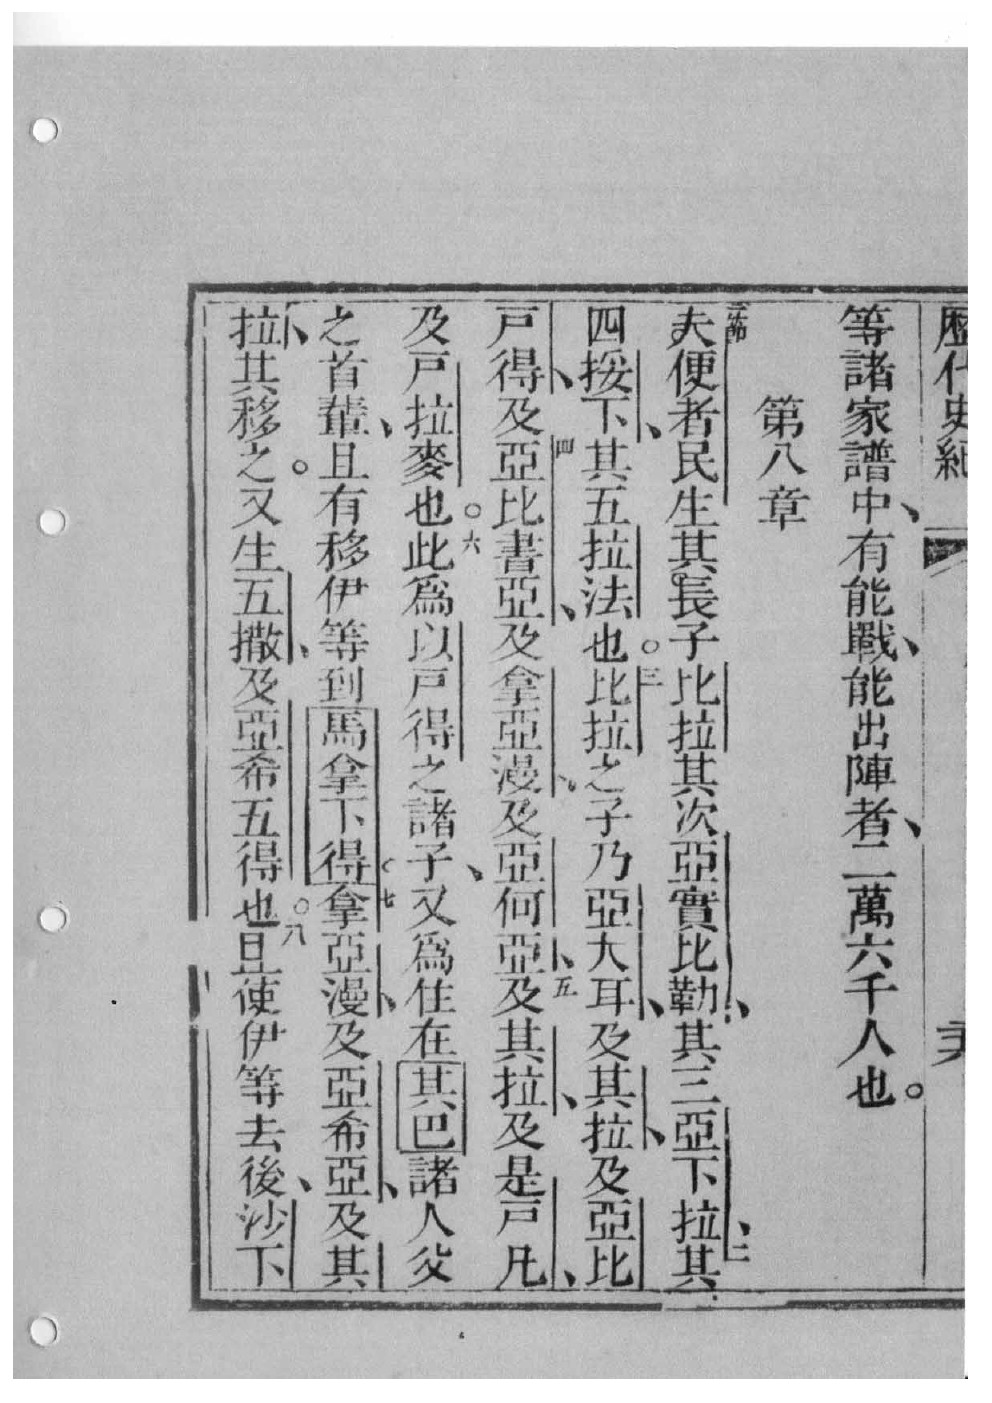 歷代史紀
等諸家譜中、有能戰、能出陣者、二萬六千人也。
第八章
一節 夫便者民生其長子比拉其次亞實比勒、其三亞下拉、二其
四挼下、其五拉法也。三比拉之子乃亞大耳、及其拉、及亞比
戶得、及四亞比書亞、及拿亞漫、及亞何亞、五及其拉、及是戶凡、
及戶拉麥也。六此爲以戶得之諸子、又爲住在其巴諸人父
之首輩、且有移伊等到馬拿下得。七拿亞漫、及亞希亞、及其
拉、其移之。又生五撒、及亞希五得也。八且使伊等去後、沙下